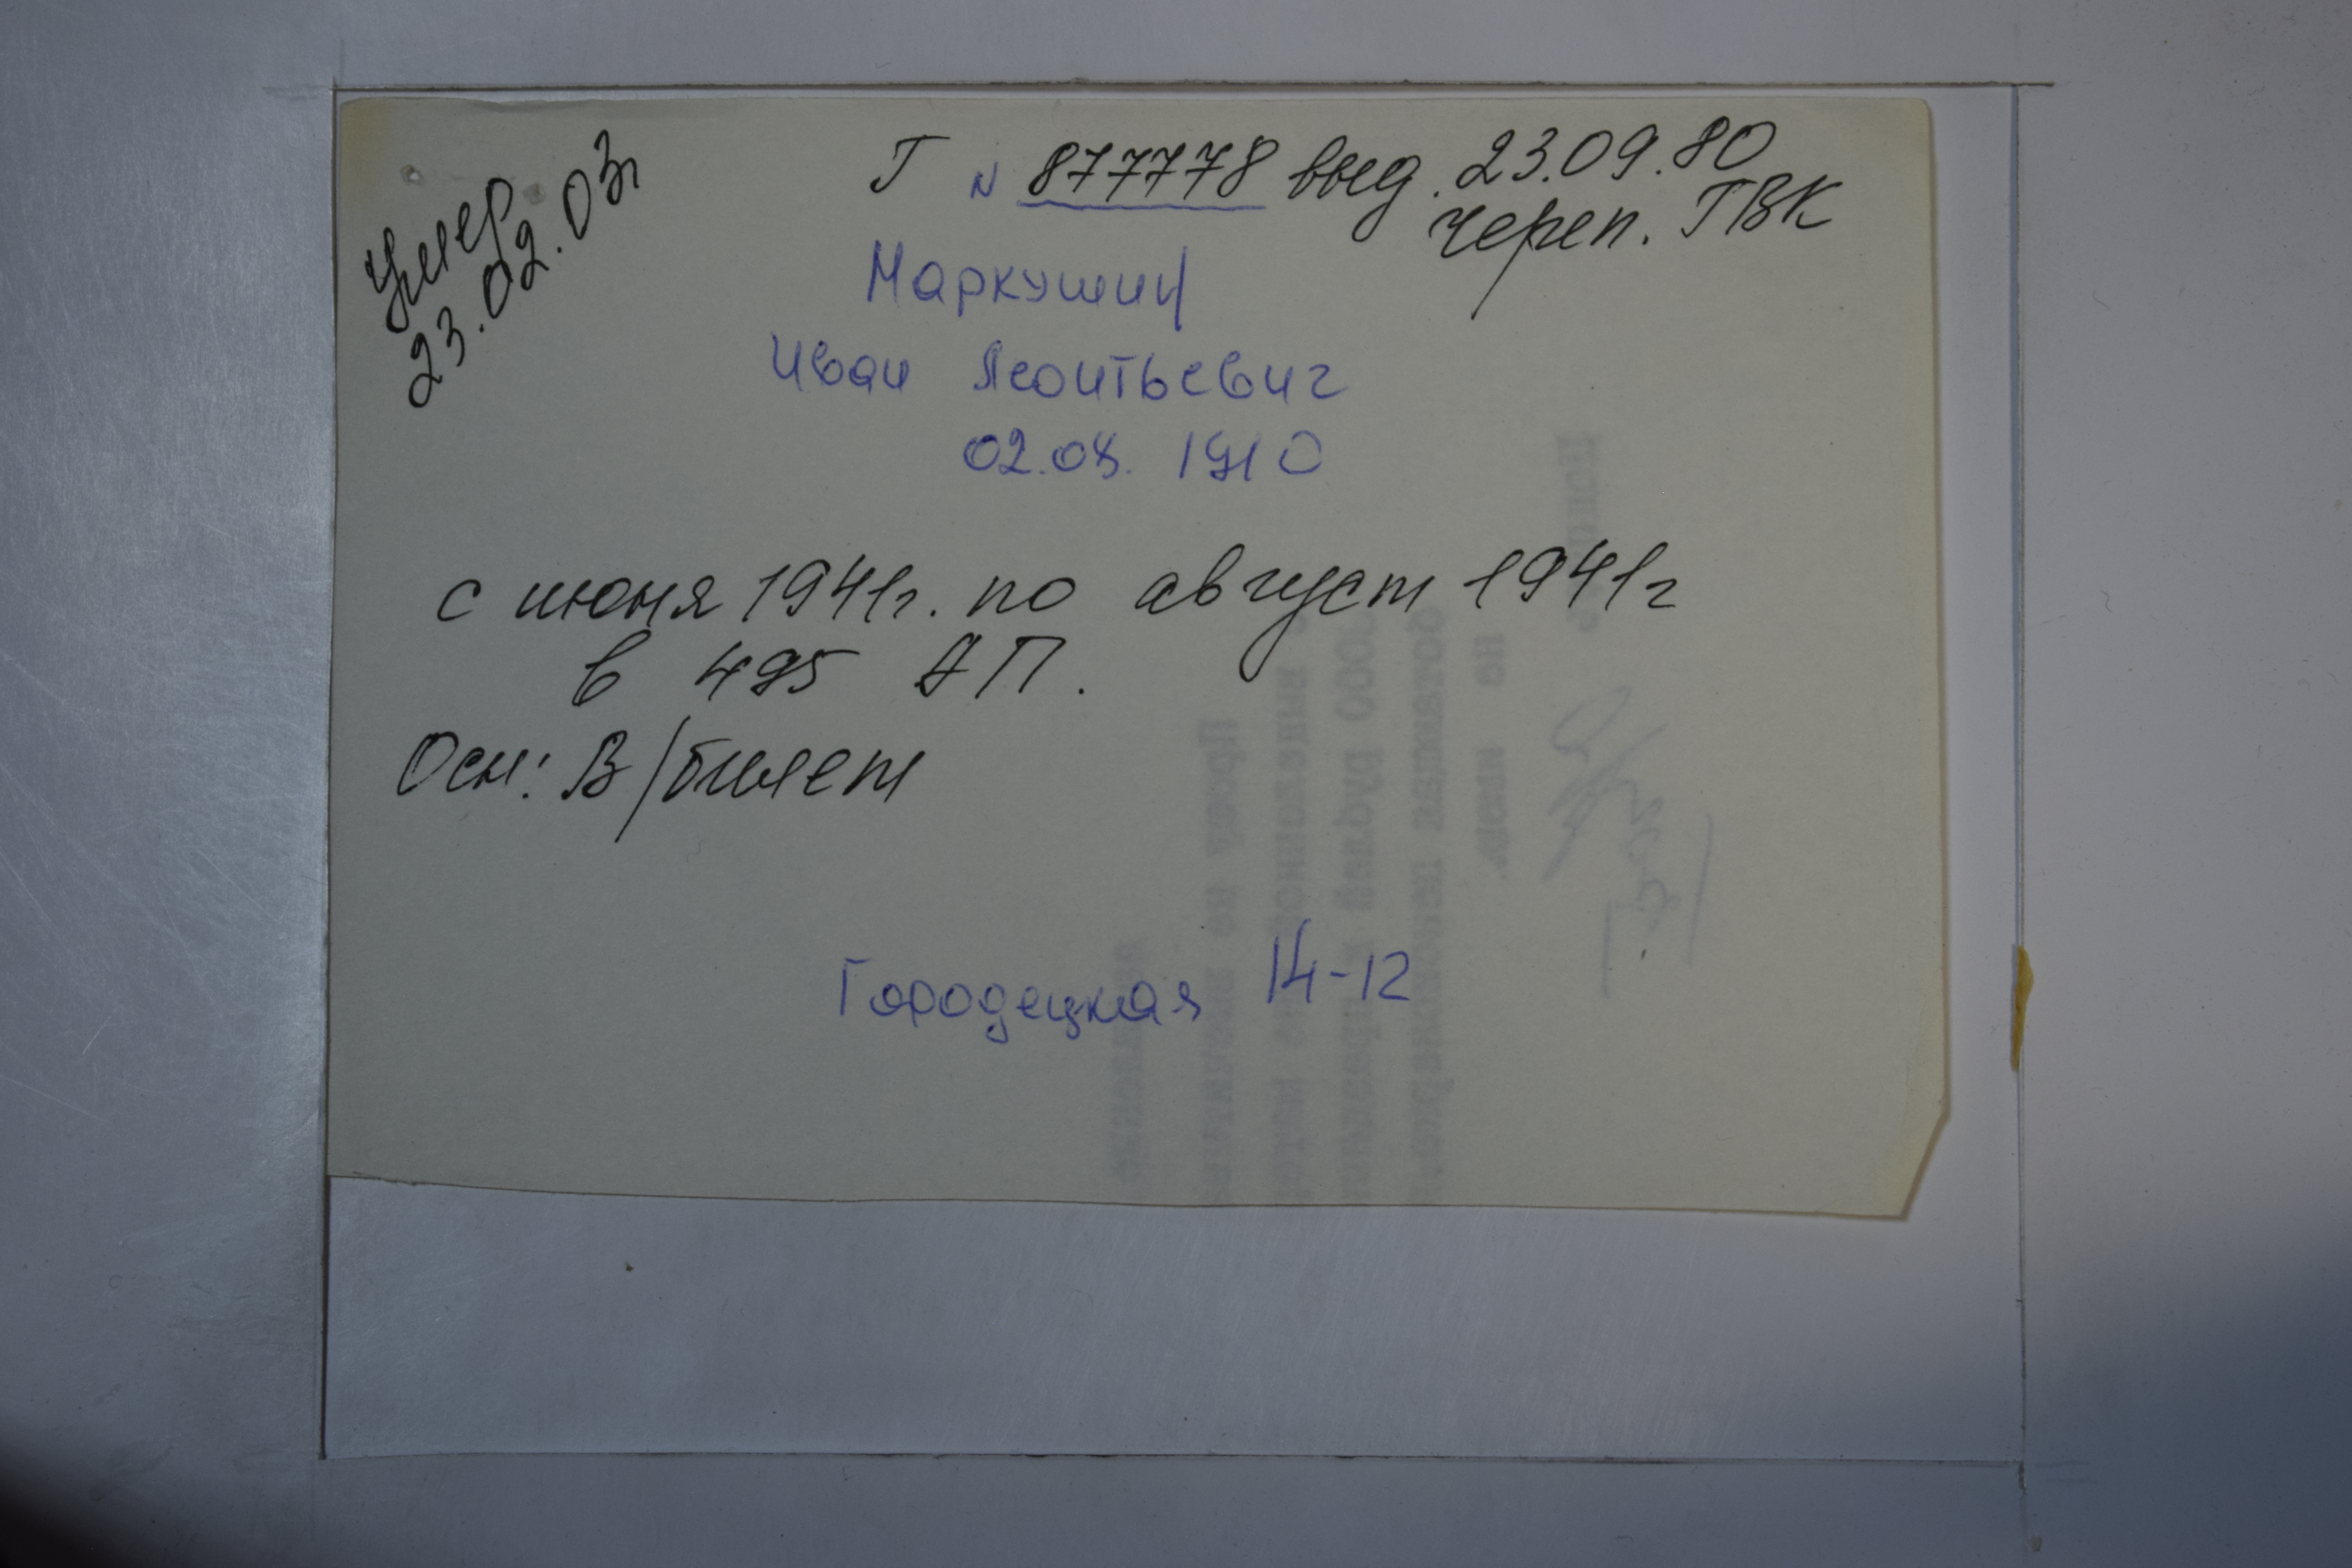 Умер
23.02.03г
Г N 877778 выд. 23.09.80
череп. ГВК
Маркушин
Иван Леонтьевич
02.08.1910
с июня 1941г. по август 1941г
в 495 АП.
Осн: В/билет
Городецкая 14-12